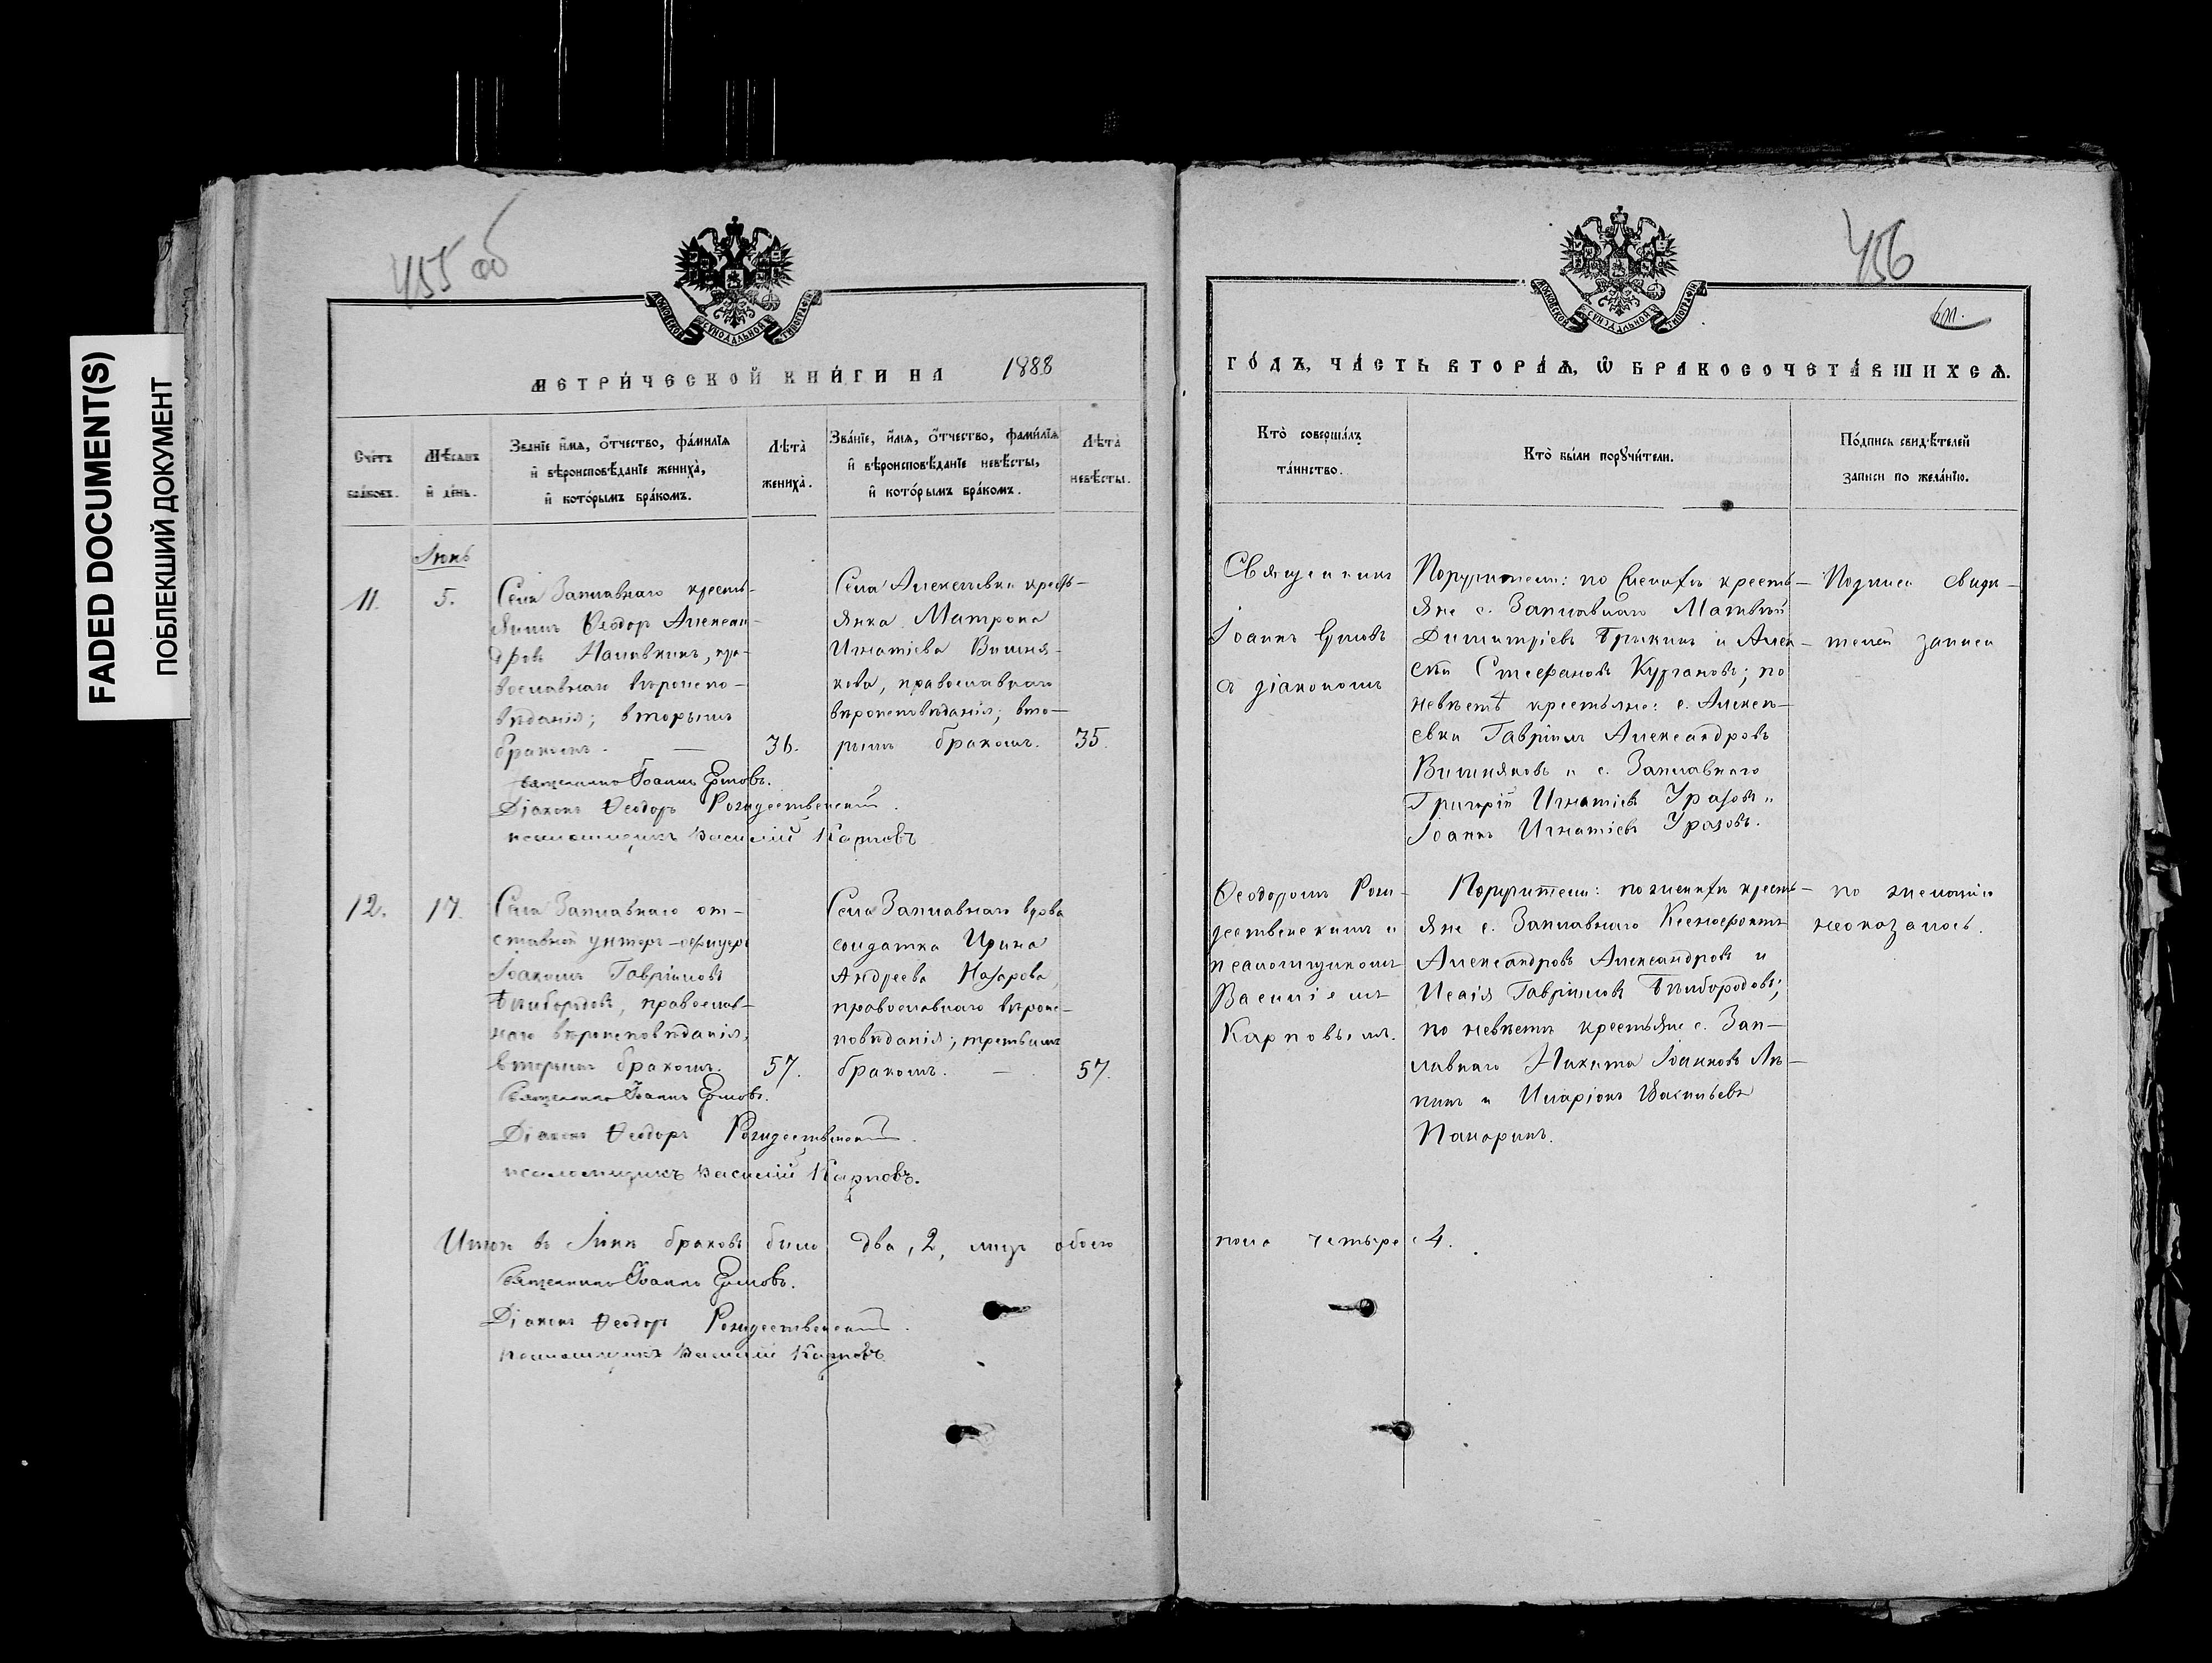 FADED DOCUMENT(S)
ПОБЛЕКШИЙ ДОКУМЕНТ
455 об
МОСКОВСКОЙ СѴНОДАЛЬНОЙ ТИПОГРАФІИ
МЕТРИ́ЧЕСКОЙ КНИ́ГИ НА 1888
Сче́тъ бра́ковъ.
Мѣ́сяцъ и҆ де́нь.
Зва́нїе и҆́мя, ѻ҆́тчество, фамилїя
и҆ вѣроисповѣ́данїе жениха̀,
и҆ кото́рымъ бра́комъ.
Лѣ́та̀
жениха̀.
Зва́нїе, и҆́мя, ѻ҆́тчество, фами́лїя
и҆ вѣроисповѣ́данїе невѣ́сты,
и҆ кото́рымъ бра́комъ.
Лѣ́та̀
невѣ́сты.
Іюнь
11.
5.
Села Заплавнаго кресть-
янинъ Ѳеодоръ Алексан-
дровъ Наливкинъ, пра-
вославнаго вѣроиспо-
вѣданія; вторымъ
бракомъ. —
36.
Села Алексѣевки кресть-
янка Матрона
Игнатіева Вишня-
кова, православнаго
вѣроисповѣданія; вто-
рымъ бракомъ.
35.
Священникъ Іоаннъ Ермовъ.
Діаконъ Ѳеодоръ Рождественскій.
псаломщикъ Василій Карповъ
12.
17.
Села Заплавнаго от-
ставной унтеръ-офицеръ
Іоакимъ Гавріиловъ
православ-
наго вѣроисповѣданія,
вторымъ бракомъ.
57.
Села Заплавнаго вдова
солдатка Ирина
Андреева Назарова,
православнаго вѣроис-
повѣданія; третьимъ
бракомъ. —
57.
Священникъ Іоаннъ Ермовъ.
Діаконъ Ѳеодоръ Рождественскій.
псаломщикъ Василій Карповъ.
Итого въ Іюнѣ браковъ было два, 2, лицъ обоего
Священникъ Іоаннъ Ермовъ.
Діаконъ Ѳеодоръ Рождественскій.
псаломщикъ Василій Карповъ
456
МОСКОВСКОЙ СѴНОДАЛЬНОЙ ТИПОГРАФІИ
ГО́ДЪ, ЧА́СТЬ ВТОРА́Я, Ѽ БРАКОСОЧЕТА́ВШИХСЯ.
Кто̀ соверша́лъ
та́инство.
Кто̀ бы́ли порꙋчи́тели.
По́дпись свидѣ́телей
записи по жела́нїю.
Священникъ
Іоаннъ Ермовъ
съ діакономъ
Поручители: по женихѣ кресть-
яне с. Заплавнаго Матвѣй
Димитріевъ и Алек-
сѣй Стефановъ Кургановъ; по
невѣстѣ крестьяне: с. Алексѣ-
евки Гавріилъ Александровъ
Вишняковъ и с. Заплавнаго
Григорій Игнатіевъ Уразовъ и
Іоаннъ Игнатіевъ Уразовъ.
Подписи свидѣ-
телей записи
Ѳеодоромъ Рож-
дественскимъ и
псаломщикомъ
Василіемъ
Карповымъ.
Поручители: по женихѣ кресть-
яне с. Заплавнаго Ксенофонтъ
Александровъ Александровъ и
Исаія Гавріиловъ
по невѣстѣ крестьяне с. Зап-
лавнаго Никита Іоанновъ
и Иларіонъ Васильевъ
Панаринъ.
по желанію
неоказалось.
пола четыре 4.